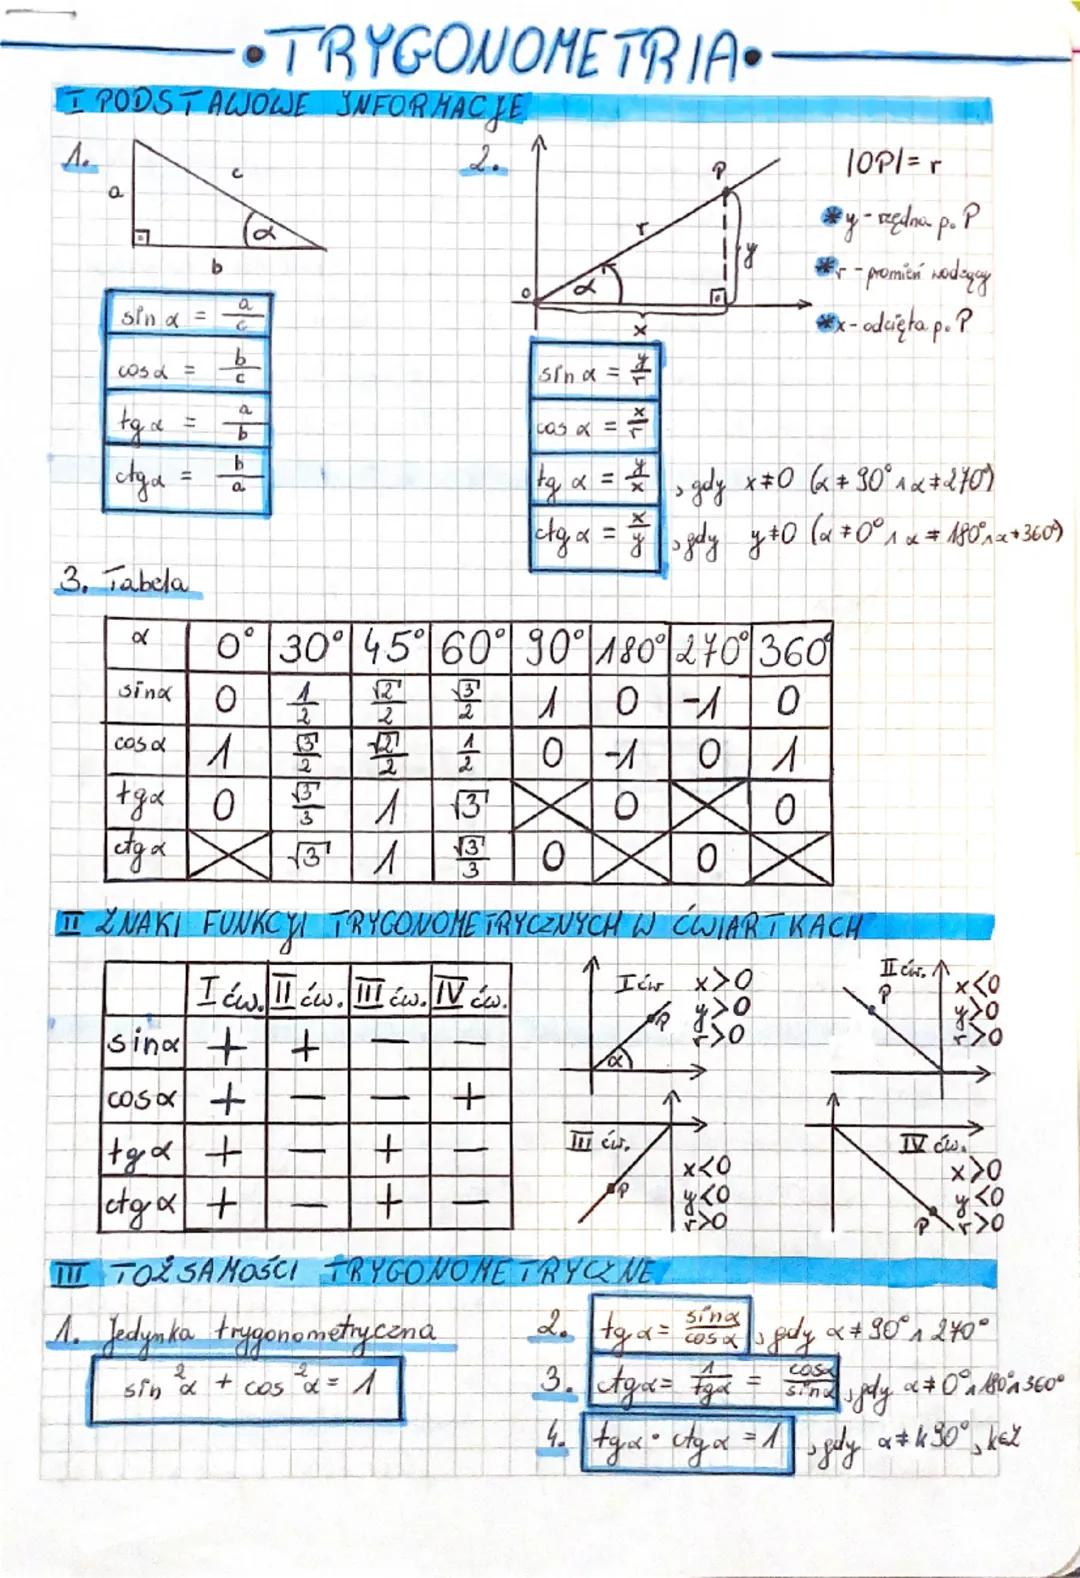 •TRYGONOMETRIA•
I PODSTAWOWE INFORMACJE
1.
a
c
α
b
sin α = a/c
cos α = b/c
tg α = a/b
ctg α = b/a
2.
P
r
y
α
0
x
|OP| = r
* y - rzędna p. P
* r - promień wodzący
* x - odcięta p. P
sin α = y/r
cos α = x/r
tg α = y/x , gdy x ≠ 0 (α ≠ 90° ∧ α ≠ 270°)
ctg α = x/y , gdy y ≠ 0 (α ≠ 0° ∧ α ≠ 180° ∧ α ≠ 360°)
3. Tabela
α 0° 30° 45° 60° 90° 180° 270° 360°
sin α 0 1/2 √2/2 √3/2 1 0 -1 0
cos α 1 √3/2 √2/2 1/2 0 -1 0 1
tg α 0 √3/3 1 √3 0 0
ctg α √3 1 √3/3 0 0
II ZNAKI FUNKCJI TRYGONOMETRYCZNYCH W ĆWIARTKACH
I ćw. II ćw. III ćw. IV ćw.
sin α + + − −
cos α + − − +
tg α + − + −
ctg α + − + −
I ćw
P
α
x>0
y>0
r>0
II ćw.
P
x<0
y>0
r>0
III ćw.
P
x<0
y<0
r>0
IV ćw.
P
x>0
y<0
r>0
III TOŻSAMOŚCI TRYGONOMETRYCZNE
1. Jedynka trygonometryczna
sin²α + cos²α = 1
2. tg α = sin α/cos α , gdy α ≠ 90° ∧ 270°
3. ctg α = 1/tg α = cos α/sin α , gdy α ≠ 0° ∧ 180° ∧ 360°
4. tg α · ctg α = 1 , gdy α ≠ k 90°, k∈Z